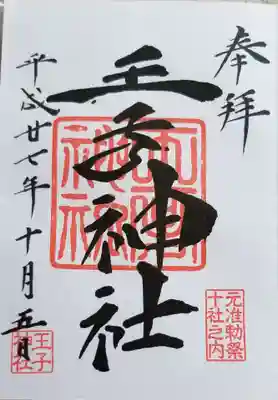 奉拝
王子神社
元准勅祭
十社之内
平成廿七年十月五日
王子
神社